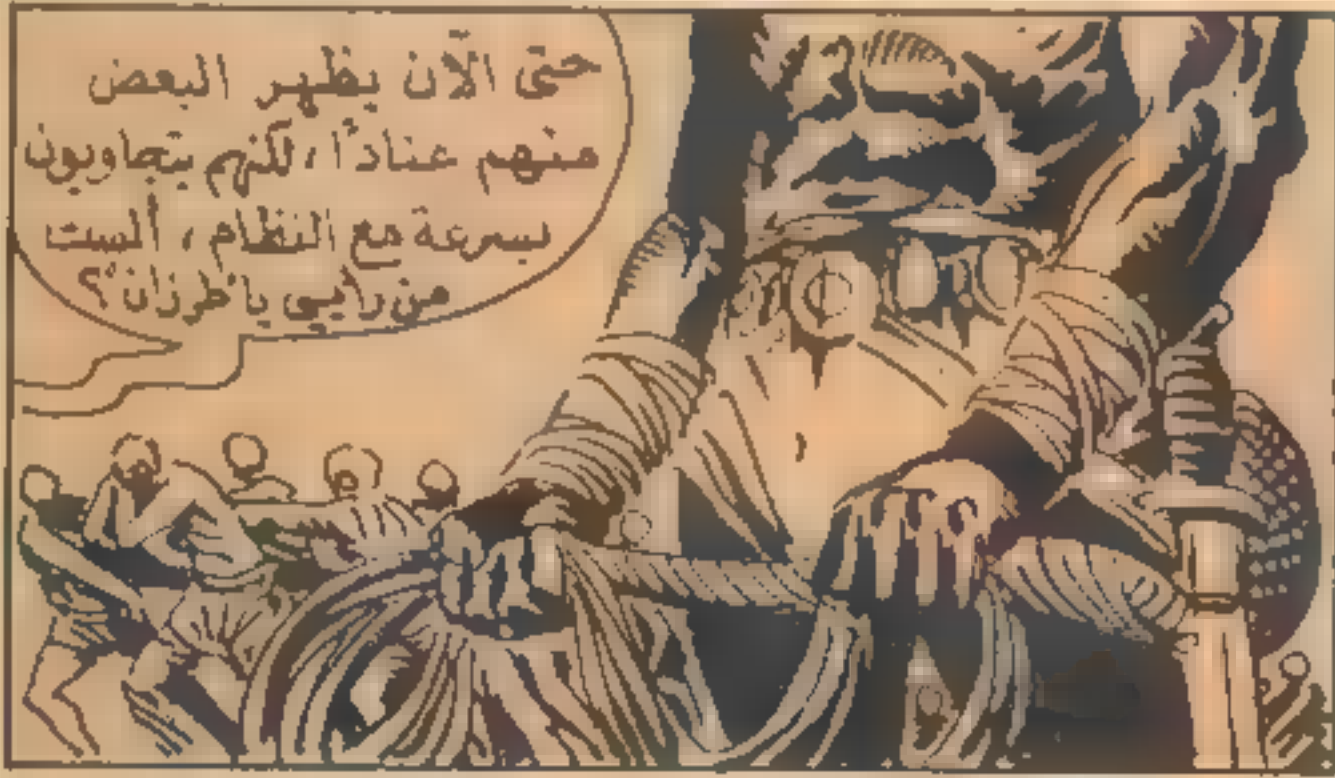 حتى الآن يظهر البعض
منهم عنادًا، لكنهم يتجاوبون
بسرعة مع النظام، ألست
من رأيي يا "طرزان"؟